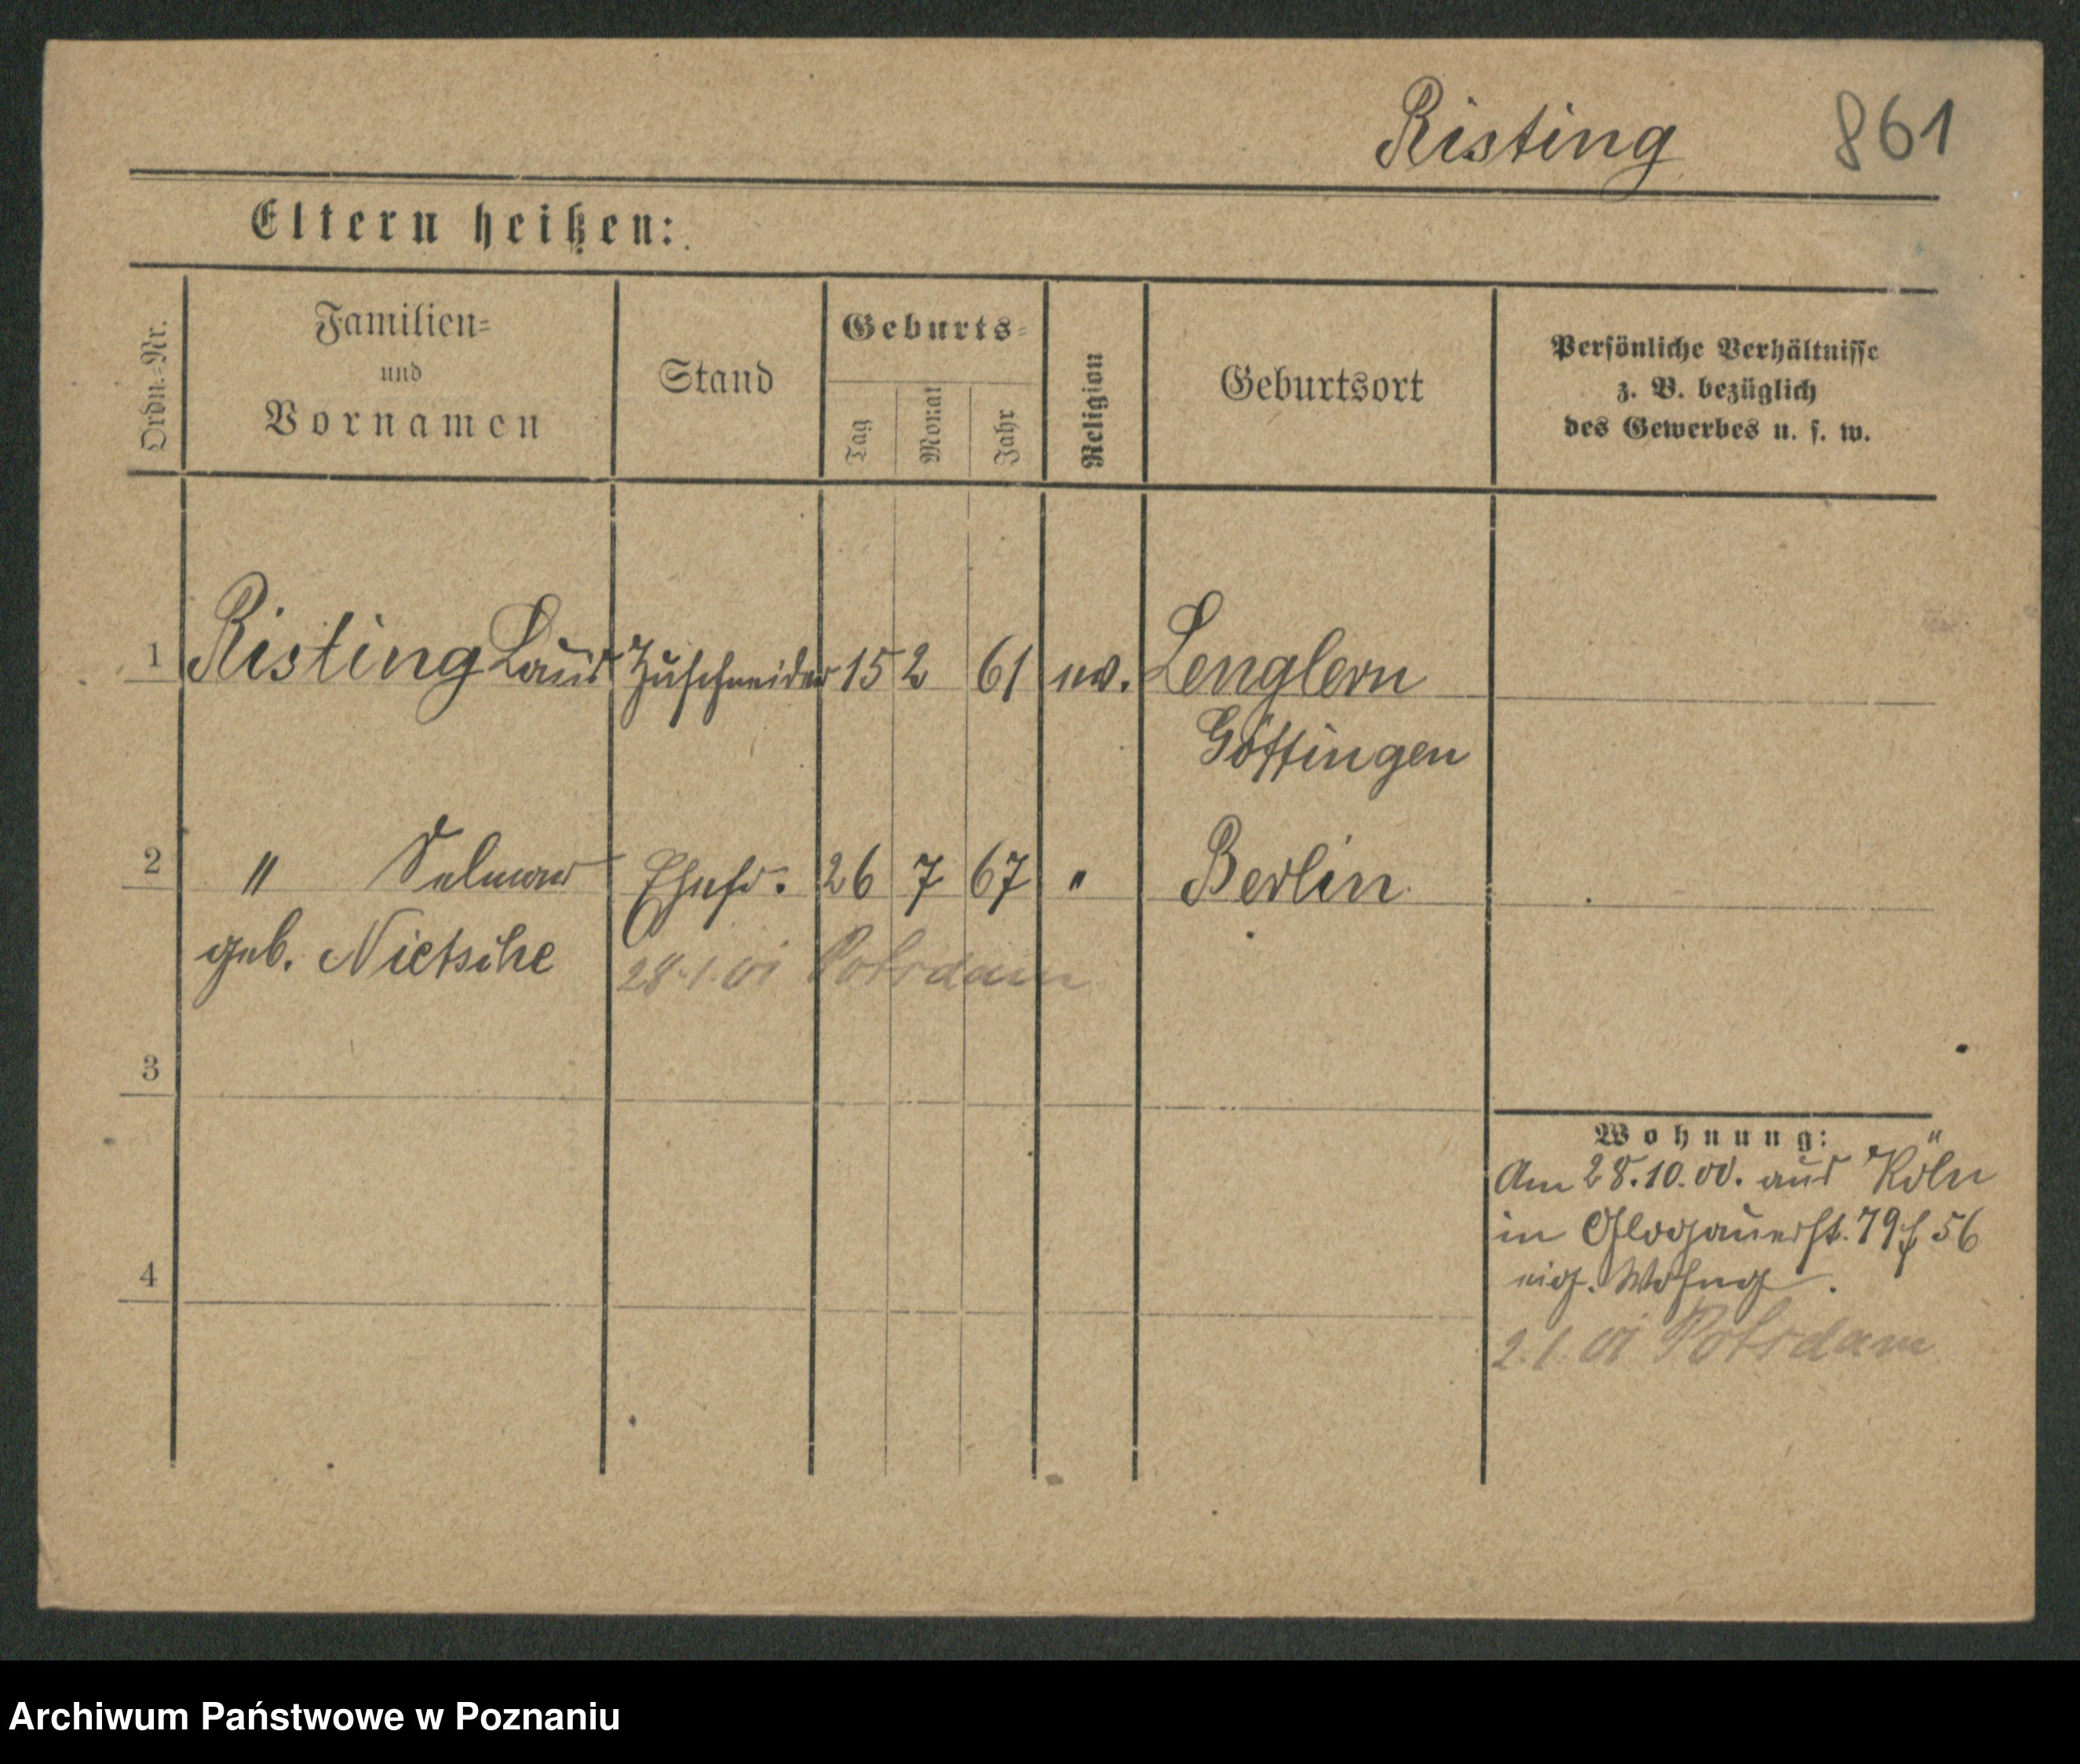 Risting 861
Eltern heißen:
Ordn.=Nr.
Familien=
und
Vornamen
Stand
Geburts=
Tag
Monat
Jahr
Religion
Geburtsort
Persönliche Verhältnisse
z. B. bezüglich
des Gewerbes u. s. w.
1 Risting Louis Zuschneider 15 2 61 ev. Lenglern
Göttingen
2 " Ehefr. 26 7 67 " Berlin
geb. Nietsche
28.1.01 Potsdam
3
Wohnung:
Am 28.10.00. aus Köln
in Glogauerst. 79 56
eig. Wohng.
4
2.1.01 Potsdam
Archiwum Państwowe w Poznaniu